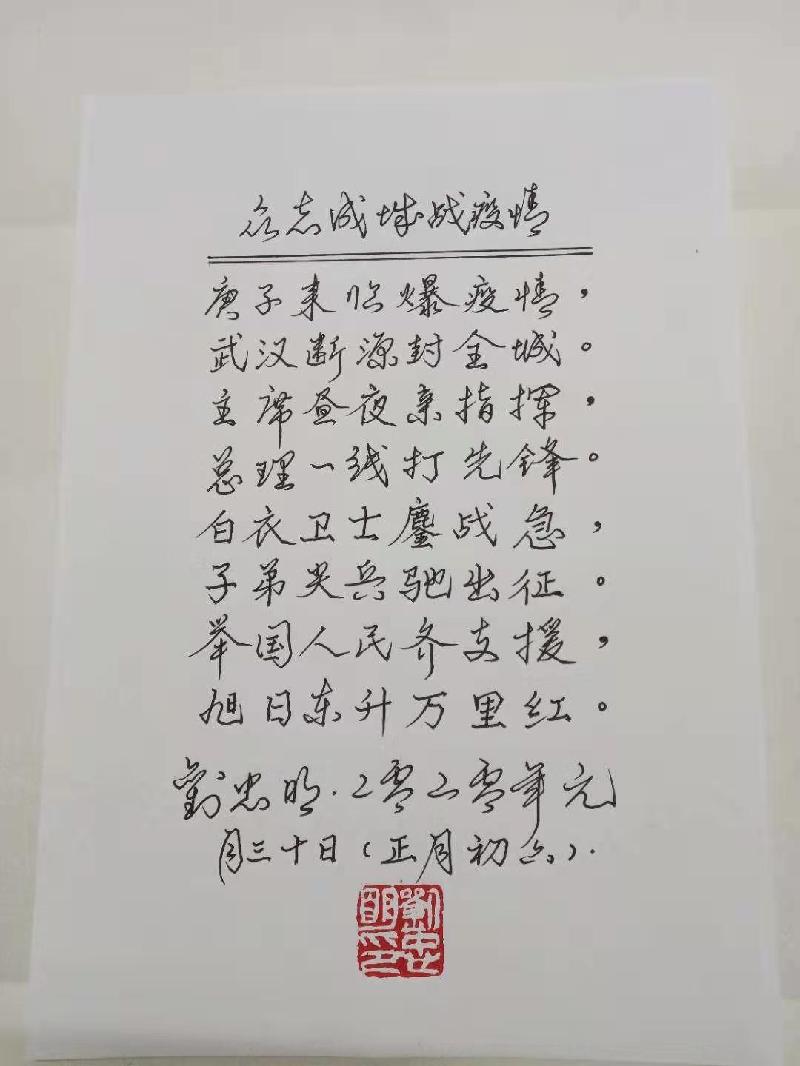 众志成城战疫情
庚子来临爆疫情，
武汉断源封全城。
主席昼夜亲指挥，
总理一线打先锋。
白衣卫士鏖战急，
子弟尖兵驰出征。
举国人民齐支援，
旭日东升万里红。
劉忠明.二零二零年元
月三十日(正月初六).
劉忠明印